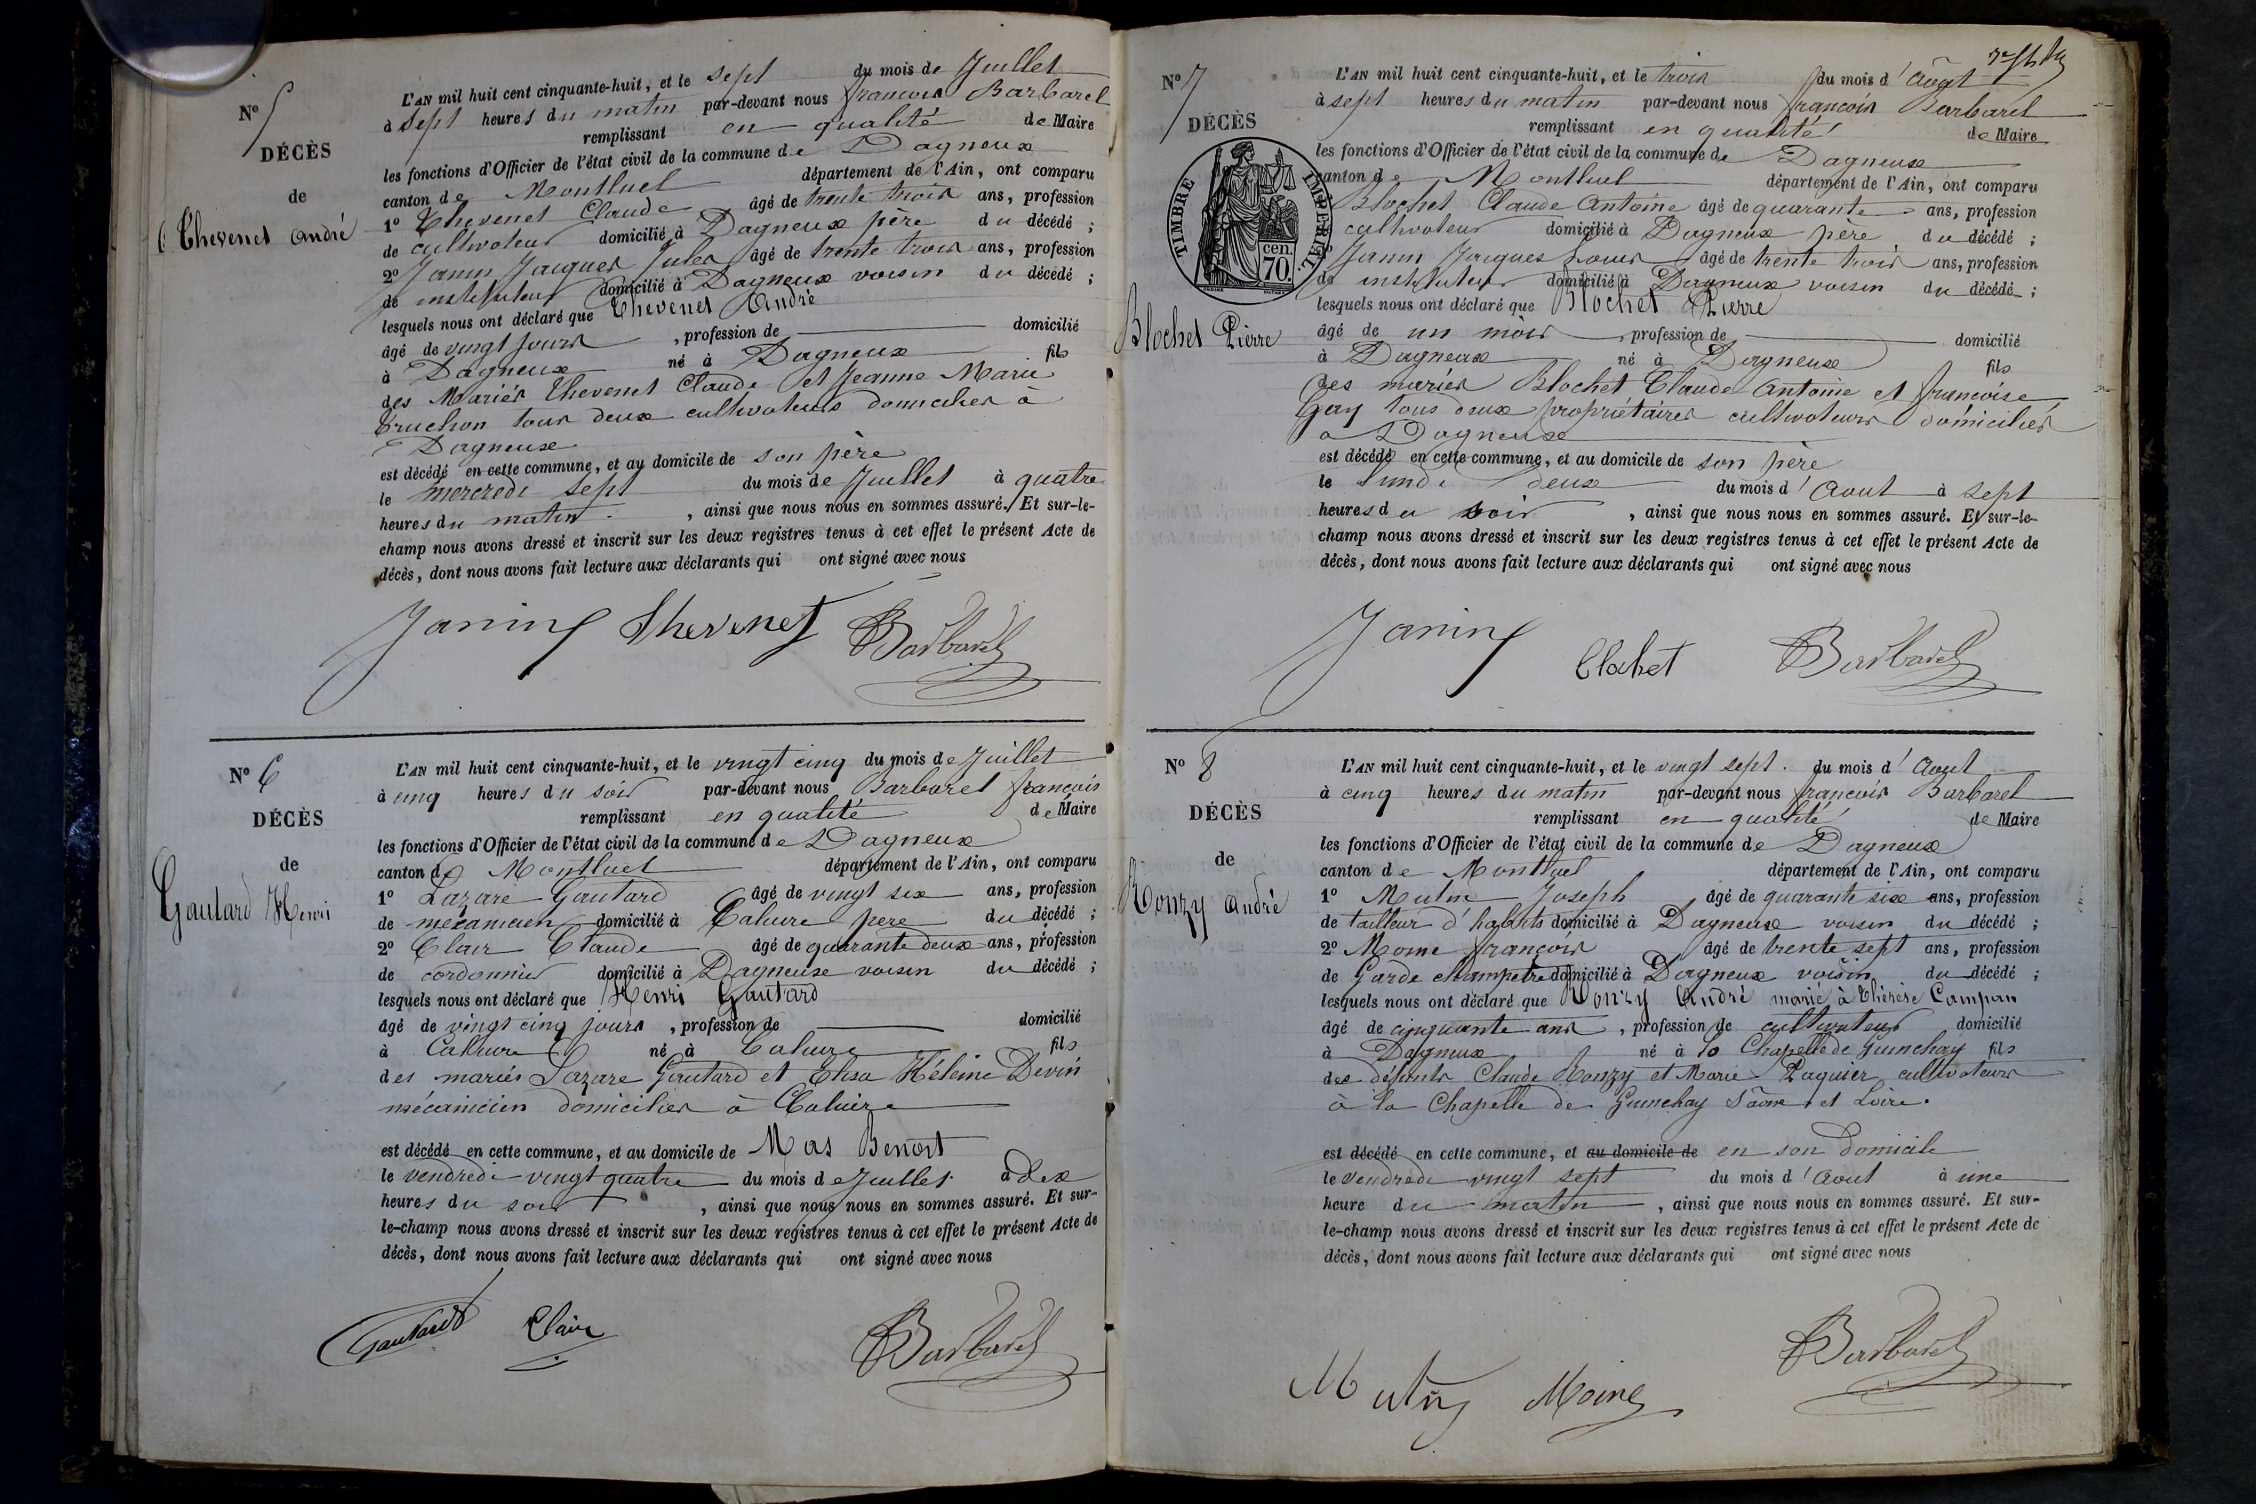 N° 5
DÉCÈS
de
Thevenet André
L'AN mil huit cent cinquante-huit, et le sept du mois de Juillet
à sept heures du matin par-devant nous françois Barbaret
remplissant en qualité de Maire
les fonctions d'Officier de l'état civil de la commune de Dagneux
canton de Montluel département de l'Ain, ont comparu
1° Thevenet Claude âgé de trente trois ans, profession
de cultivateur domicilié à Dagneux père du décédé ;
2° Janin Jacques Jules âgé de trente trois ans, profession
de instituteur domicilié à Dagneux voisin du décédé ;
lesquels nous ont déclaré que Thevenet André
âgé de vingt jours , profession de domicilié
à Dagneux né à Dagneux fils
des Mariés Thevenet Claude et Jeanne Marie
Truchon tous deux cultivateurs domicilies à
Dagneux
est décédé en cette commune, et au domicile de son père
le mercredi sept du mois de Juillet à quatre
heures du matin , ainsi que nous nous en sommes assuré. Et sur-le-
champ nous avons dressé et inscrit sur les deux registres tenus à cet effet le présent Acte de
décès, dont nous avons fait lecture aux déclarants qui ont signé avec nous
Janin Thevenet Barbaret
N° 6
DÉCÈS
de
Gautard Henri
L'AN mil huit cent cinquante-huit, et le vingt cinq du mois de Juillet
à cinq heures du soir par-devant nous Barbaret françois
remplissant en qualité de Maire
les fonctions d'Officier de l'état civil de la commune de Dagneux
canton de Montluel département de l'Ain, ont comparu
1° Lazare Gautard âgé de vingt six ans, profession
de mécanicien domicilié à Caluire père du décédé ;
2° Clair Claude âgé de quarante deux ans, profession
de cordonnier domicilié à Dagneux voisin du décédé ;
lesquels nous ont déclaré que Henri Gautard
âgé de vingt cinq jours , profession de domicilié
à Caluire né à Caluire fils
des mariés Lazare Gautard et Elisa Hélène Devin
mécanicien domicilies à Caluire
est décédé en cette commune, et au domicile de Mas Benoit
le vendredi vingt quatre du mois de Juillet à dix
heures du soir , ainsi que nous nous en sommes assuré. Et sur-
le-champ nous avons dressé et inscrit sur les deux registres tenus à cet effet le présent Acte de
décès, dont nous avons fait lecture aux déclarants qui ont signé avec nous
Gautard Clair Barbaret
N° 7
DÉCÈS
TIMBRE IMPÉRIAL
cen.
70.
Blochet Pierre
L'AN mil huit cent cinquante-huit, et le trois du mois d'Août
à sept heures du matin par-devant nous françois Barbaret
remplissant en qualité de Maire
les fonctions d'Officier de l'état civil de la commune de Dagneux
canton de Montluel département de l'Ain, ont comparu
Blochet Claude Antoine âgé de quarante ans, profession
cultivateur domicilié à Dagneux père du décédé ;
Janin Jacques Louis âgé de trente trois ans, profession
de instituteur domicilié à Dagneux voisin du décédé ;
lesquels nous ont déclaré que Blochet Pierre
âgé de un mois , profession de domicilié
à Dagneux né à Dagneux fils
des mariés Blochet Claude Antoine et francoise
Gay tous deux propriétaires cultivateurs domiciliés
a Dagneux
est décédé en cette commune, et au domicile de son père
le lundi deux du mois d'Aout à sept
heures du soir , ainsi que nous nous en sommes assuré. Et sur-le-
champ nous avons dressé et inscrit sur les deux registres tenus à cet effet le présent Acte de
décès, dont nous avons fait lecture aux déclarants qui ont signé avec nous
Janin Blochet Barbaret
N° 8
DÉCÈS
de
Ronzy André
L'AN mil huit cent cinquante-huit, et le vingt sept du mois d'Aout
à cinq heures du matin par-devant nous françois Barbaret
remplissant en qualité de Maire
les fonctions d'Officier de l'état civil de la commune de Dagneux
canton de Montluel département de l'Ain, ont comparu
1° Mutin Joseph âgé de quarante six ans, profession
de tailleur d'habits domicilié à Dagneux voisin du décédé ;
2° Moine françois âgé de trente sept ans, profession
de Garde champetre domicilié à Dagneux voisin du décédé ;
lesquels nous ont déclaré que Ronzy André marié à Thérèse Campan
âgé de cinquante ans , profession de cultivateur domicilié
à Dagneux né à la Chapelle de Guinchay fils
des défunts Claude Ronzy et Marie Paquier cultivateurs
à la Chapelle de Guinchay Saône et Loire.
est décédé en cette commune, et au domicile de en son domicile
le vendredi vingt sept du mois d'Aout à une
heure du matin , ainsi que nous nous en sommes assuré. Et sur-
le-champ nous avons dressé et inscrit sur les deux registres tenus à cet effet le présent Acte de
décès, dont nous avons fait lecture aux déclarants qui ont signé avec nous
Mutin Moine Barbaret